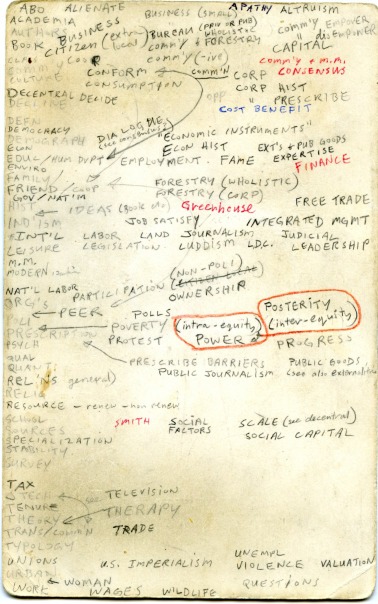 ABO ALIENATE BUSINESS (SMALL) APATHY ALTRUISM
ACADEMIA BUSINESS BUREAU (PRIV OR PUB) COMM'Y EMPOWER
AUTHOR CITIZEN (extra) (local) WHOLISTIC " DISEMPOWER
BOOK COOP COMM'Y ← FORESTRY CAPITAL
COMM'Y (-IVE) COMM'Y + M.M.
CULTURE CONFORM COMM'N CORP CONSENSUS
CONSUMPTION CORP HIST
DECENTRAL DECIDE OPP " PRESCRIBE
DECLINE COST BENEFIT
DEFN DIALOGUE
DEMOCRACY (see consensus) "ECONOMIC INSTRUMENTS"
DEMOGRAPH ECON HIST EXT'S + PUB GOODS
ECON EXPERTISE
EDUC/HUM DVPT EMPLOYMENT. FAME FINANCE
ENVIRO
FAMILY FORESTRY (WHOLISTIC)
FRIEND/COOP FORESTRY (CORP)
GOV/NAT'IM FREE TRADE
HIST IDEAS (Book etc) Greenhouse
INDISM JOB SATISFY INTEGRATED MGMT
INT'L LABOR LAND JOURNALISM JUDICIAL
LEISURE LEGISLATION. LUDDISM L.D.C. LEADERSHIP
M.M.
MODERN (NON-POLI)
NAT'L LABOR PARTICIPATION (CITIZEN LOCAL)
ORG'S OWNERSHIP
PEER POLLS POSTERITY
POLI POVERTY (intra-equity) (inter-equity)
PRESCRIPTION PROTEST POWER PROGRESS
PSYCH
QUAL PRESCRIBE BARRIERS PUBLIC GOODS
QUANTI PUBLIC JOURNALISM (see also externalities)
REL'NS general)
RELIG
RESOURCE - renew - non renew
SCHOOL SMITH SOCIAL SCALE (see decentral)
SOURCES FACTORS SOCIAL CAPITAL
SPECIALIZATION
STABILITY
SURVEY
TAX
TECH TELEVISION
TENURE THERAPY
THEORY
TRANS/COMM'N TRADE
TYPOLOGY
UNIONS U.S. IMPERIALISM UNEMPL
URBAN VIOLENCE VALUATION
WOMAN QUESTIONS
WORK WAGES WILDLIFE